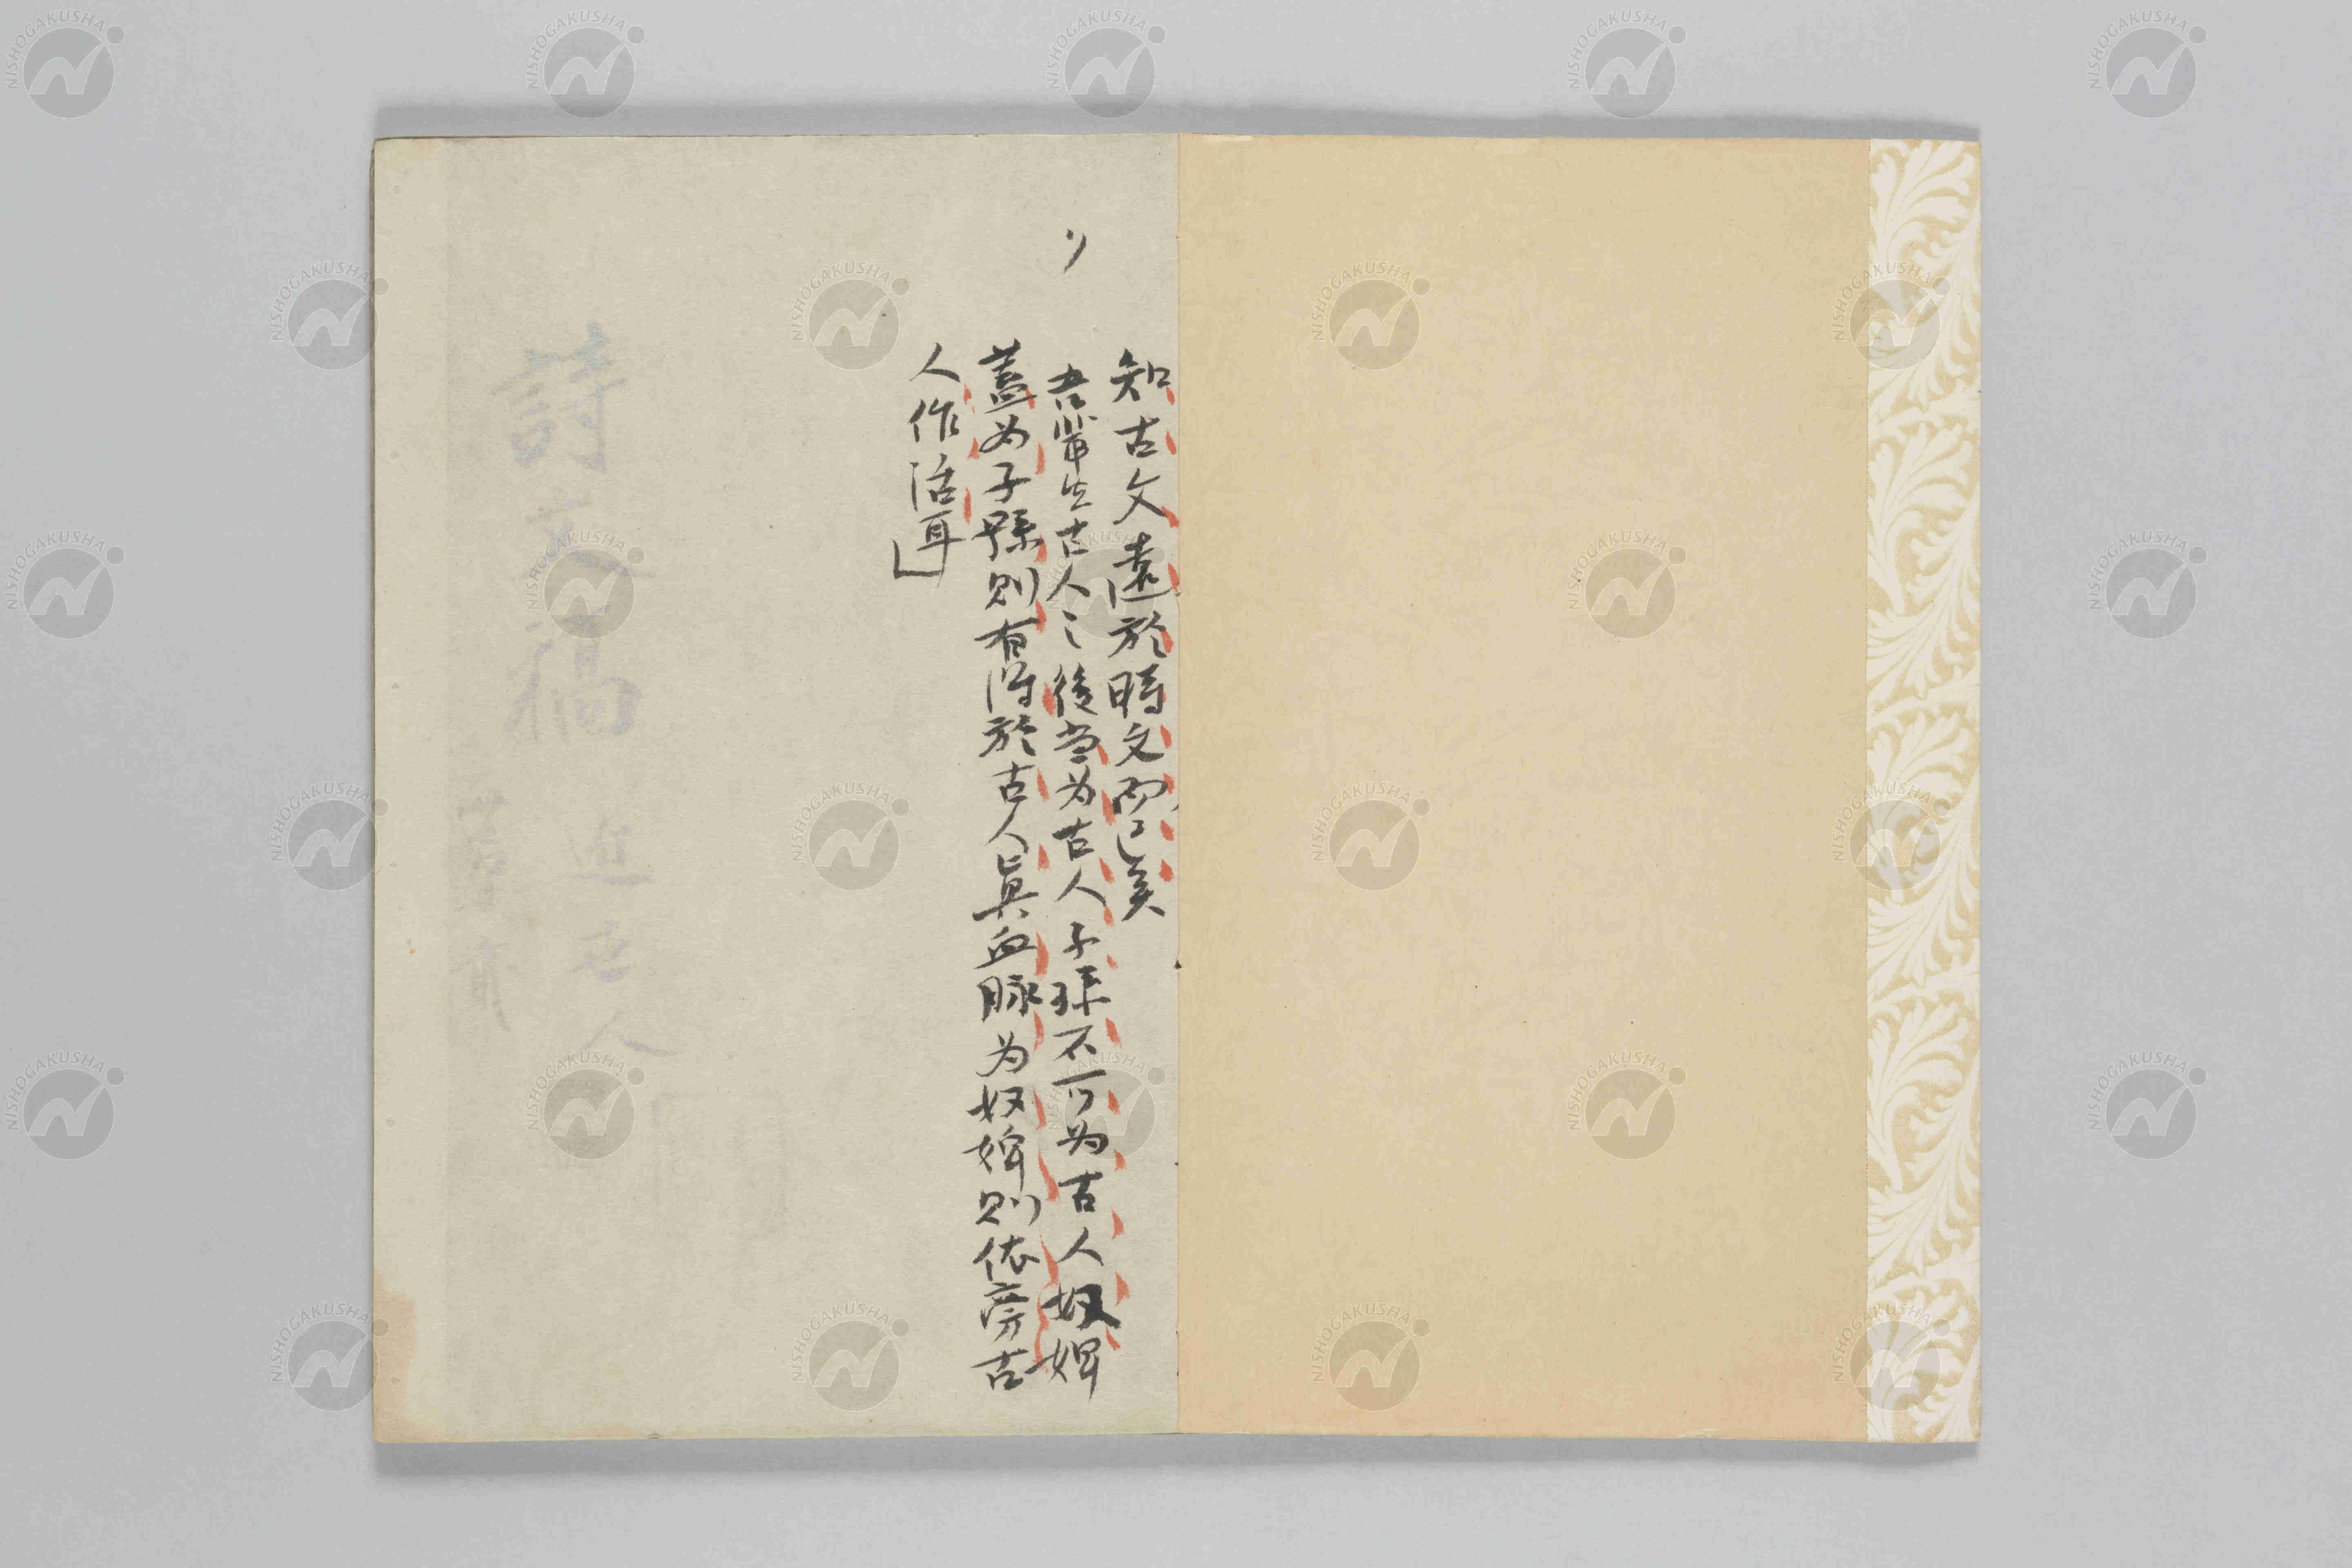 知古文遠於時文而已矣
吾輩生古人之後当為古人子孫不可為古人奴婢
蓋為子孫則有得於古人眞血脉為奴婢則依旁古
人作活耳」
詩文稿
NISHOGAKUSHA